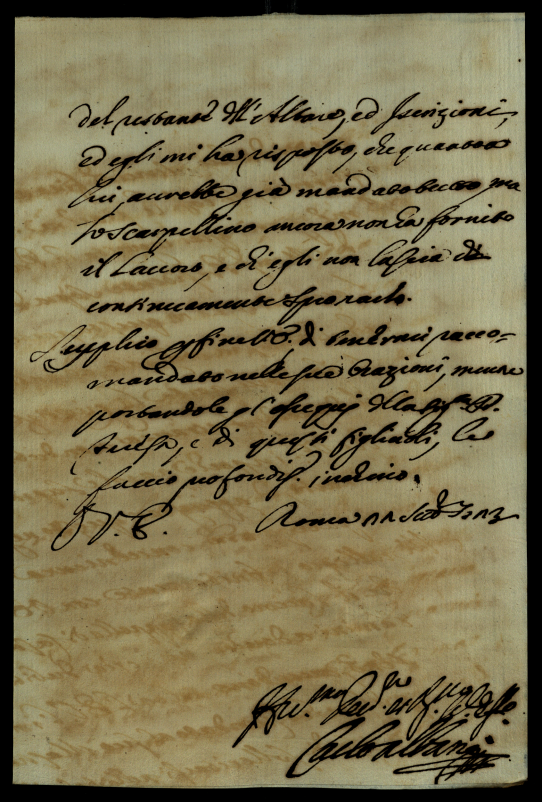 del restante dell'Altare, ed Iscrizioni,
ed egli mi ha risposto, che quanto a
lui, avrebbe già mandato tutto, ma
lo Scarpellino ancora non ha fornito
il Lavoro, e ch'egli non lascia di
continuamente spronarlo.
Supplico per fine V. E. di tenermi racco-
mandato nelle sue Orazioni, mentre
portandole gl'ossequi della Sig.ra D.
Teresa, e di questi figliuoli, le
faccio profondis.o inchino.
D. V. E.
Roma 11
Carlo Albani